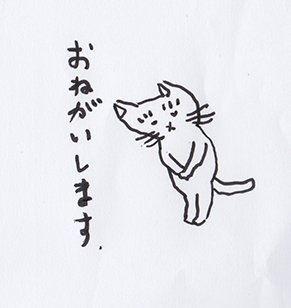 おねがいします.